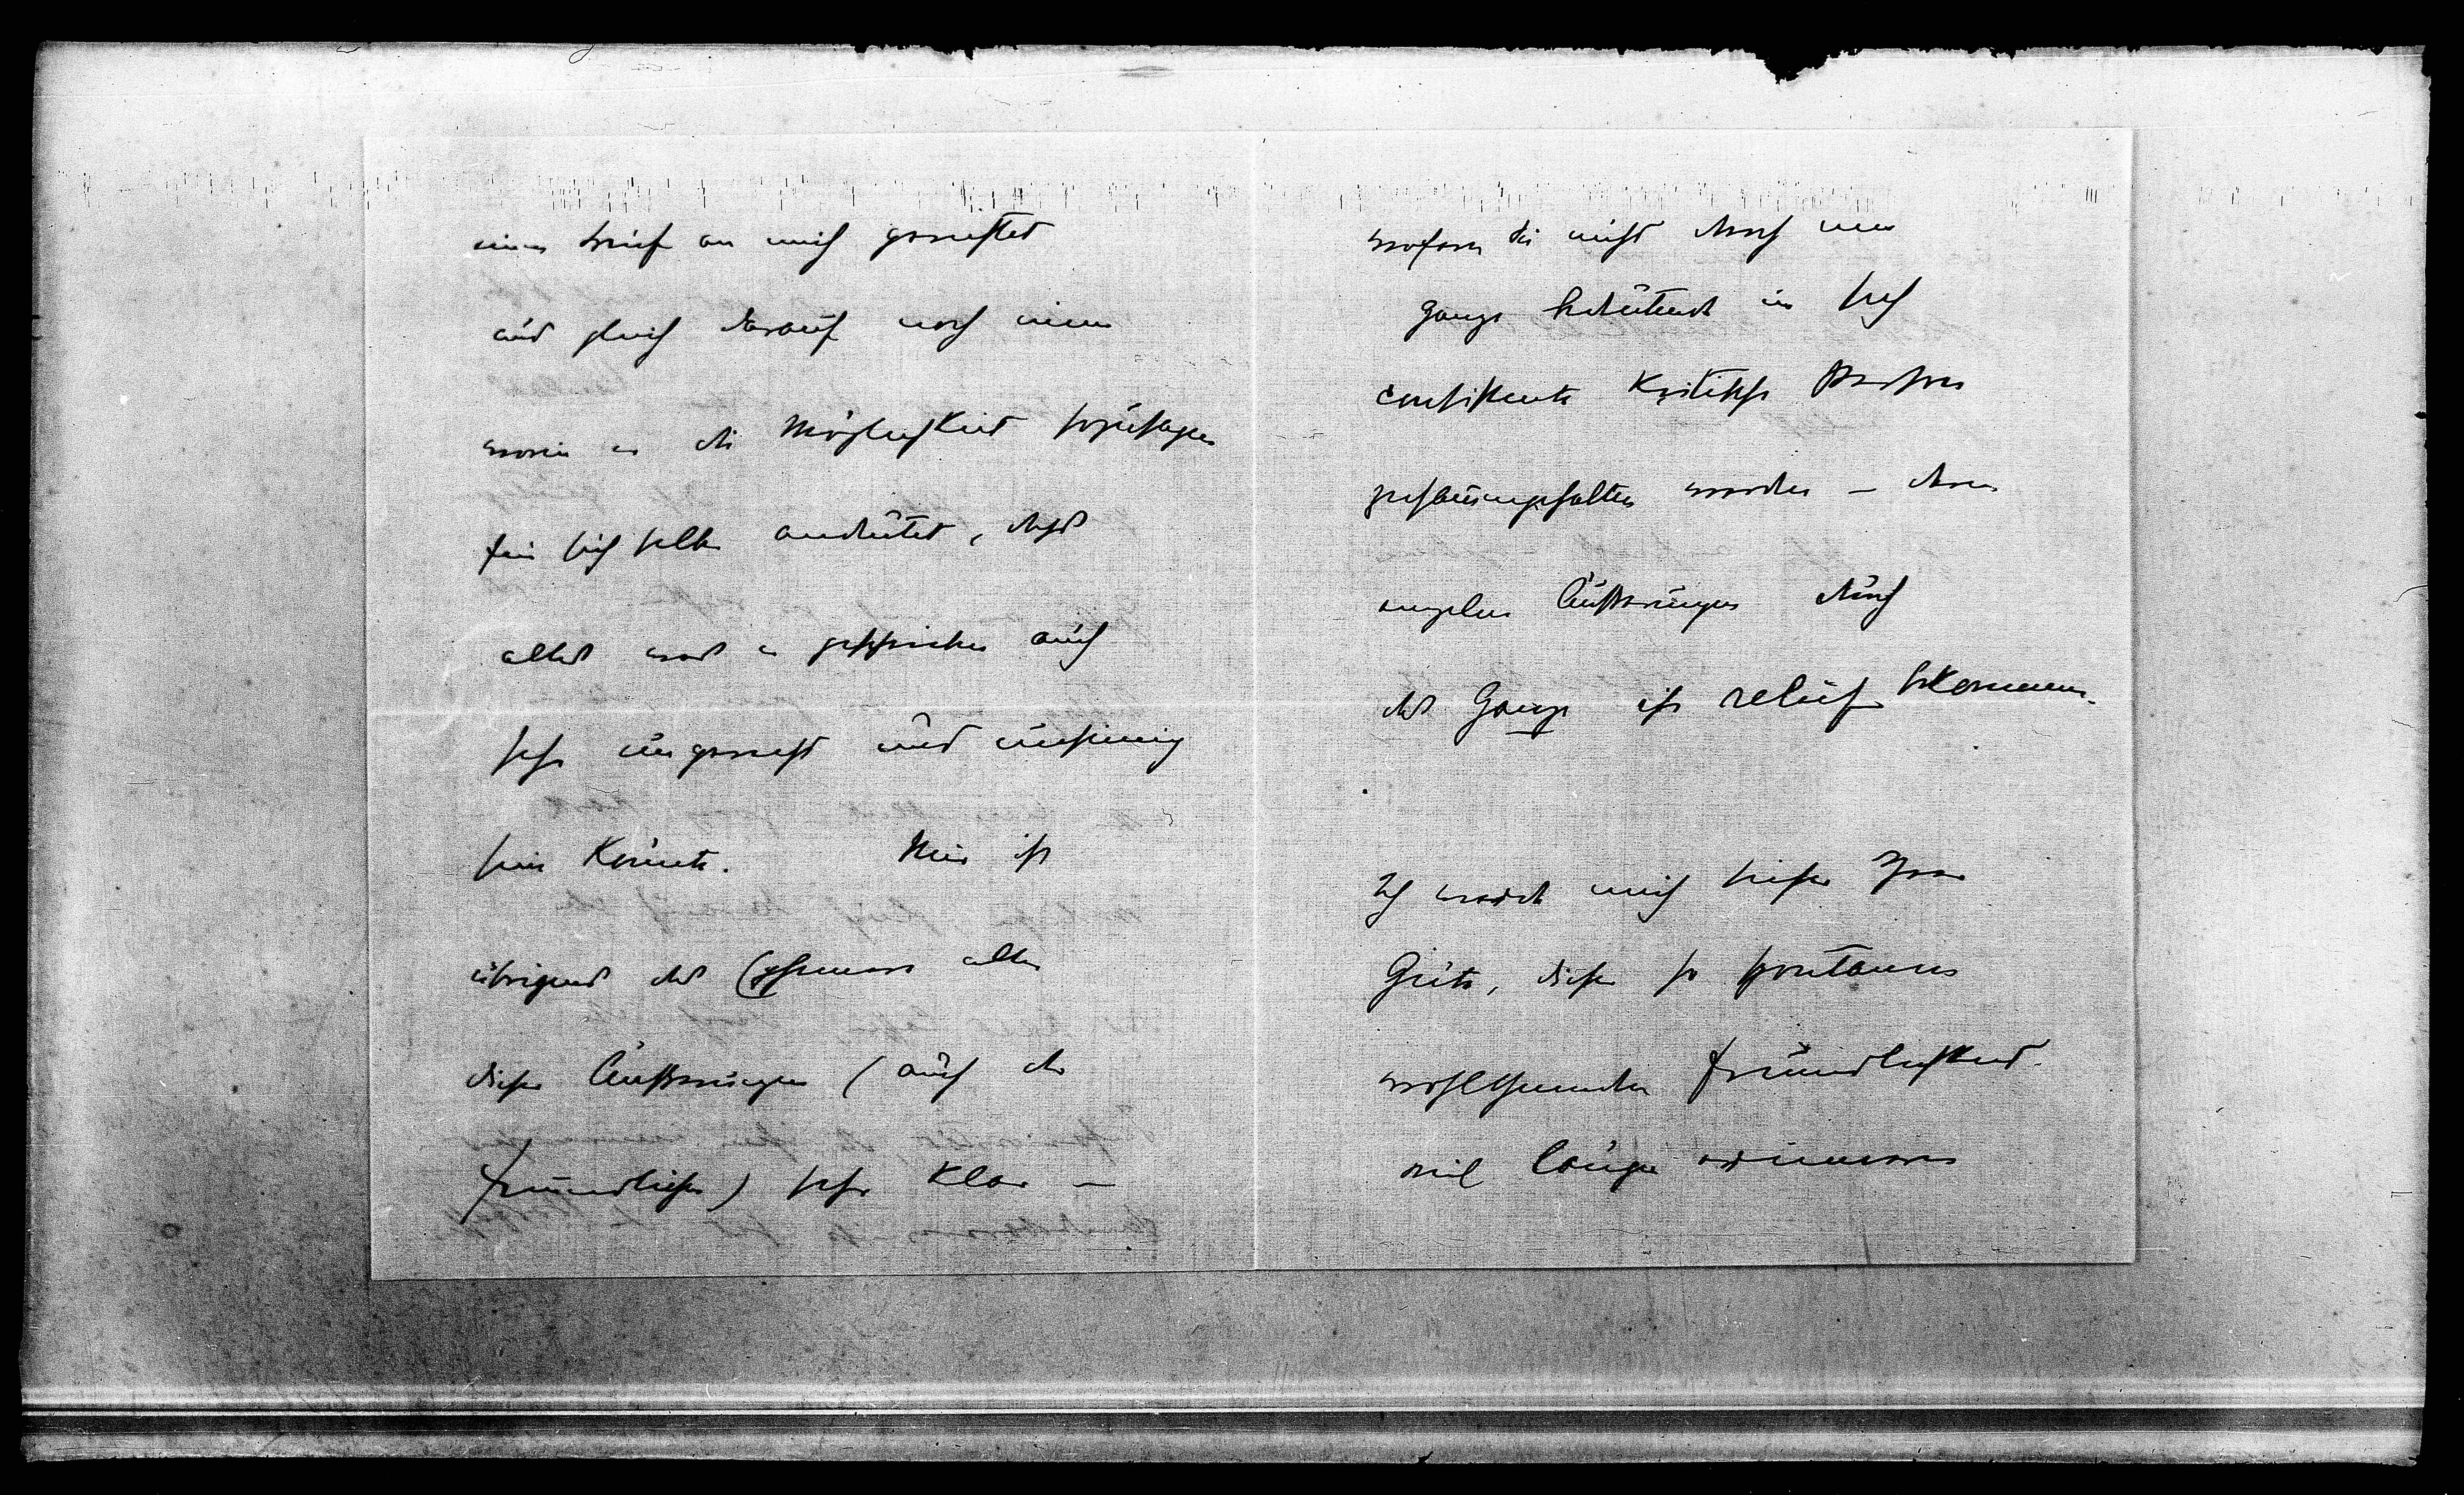 einen Brief an mich gerichtet
und gleich darauf noch einen
worin er die Möglichkeit sozusagen
für sich selber andeutet, dass
alles was er geschrieben auch
sehr ungerecht und unsinnig
sein könnte. Mir ist
übrigens das Ephemere aller
dieser Äusserungen (auch der
freundlichen) sehr klar –
wofern sie nicht durch eine
ganze bedeutende in sich
consistente kritische Person
zusammengehalten werden – deren
einzelne Äusserungen durch
das Ganze ihr relief bekommen.
Ich werde mich dieser Ihrer
Güte, dieser so spontanen
wohlthuenden Freundlichkeit
viel länger erinnern